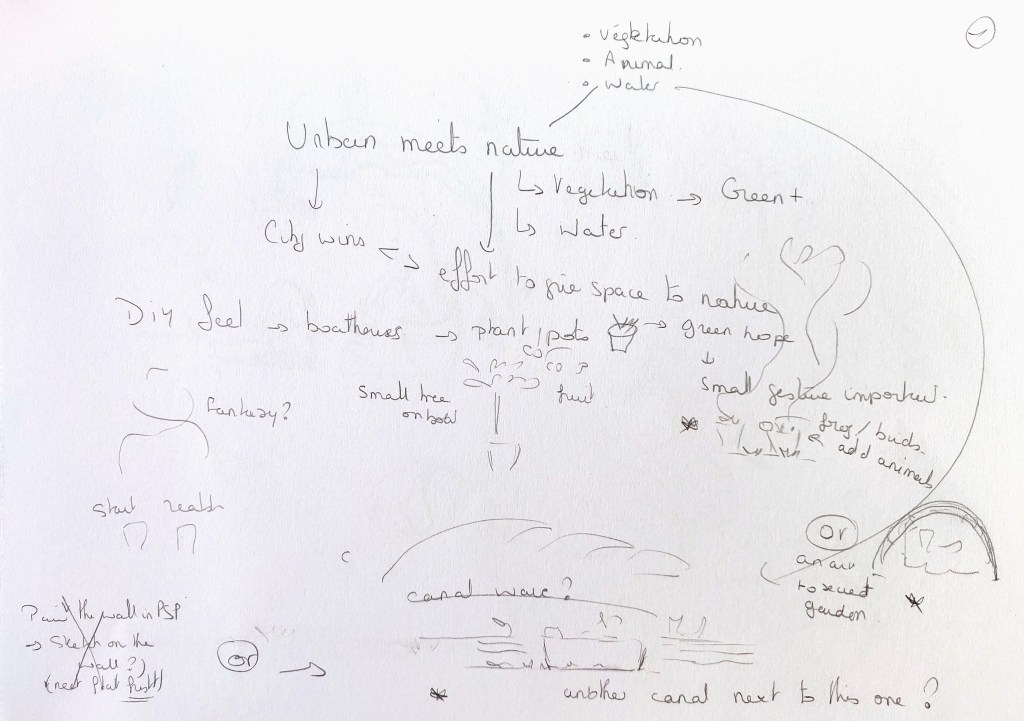 • Végétation
• Animal.
• Water
Urban meets nature
↳ Vegetation → Green+
↳ Water.
City wins
effort to give space to nature
Diy feel → boathouses → plant/pots → green hope
small gesture important.
Small tree
on boat
fruit
fantasy?
frog/birds
add animals
start
or
to secret
garden
canal wave?
Paint the wall in PSP
→ Sketch on the
wall?)
(next flat first)
or →
another canal next to this one?